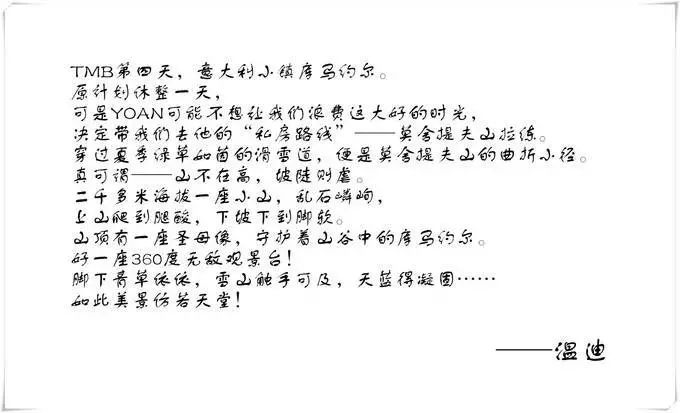 TMB第四天，意大利小镇库马约尔。
原计划休整一天，
可是YOAN可能不想让我们浪费这大好的时光，
决定带我们去他的“私房路线”——莫舍提夫山拉练。
穿过夏季绿草如茵的滑雪道，便是莫舍提夫山的曲折小径。
真可谓——山不在高，坡陡则虐。
二千多米海拔一座小山，乱石嶙峋，
上山爬到腿酸，下坡下到脚软。
山顶有一座圣母像，守护着山谷中的库马约尔。
好一座360度无敌观景台！
脚下青草依依，雪山触手可及，天蓝得凝固……
如此美景仿若天堂！
——温迪